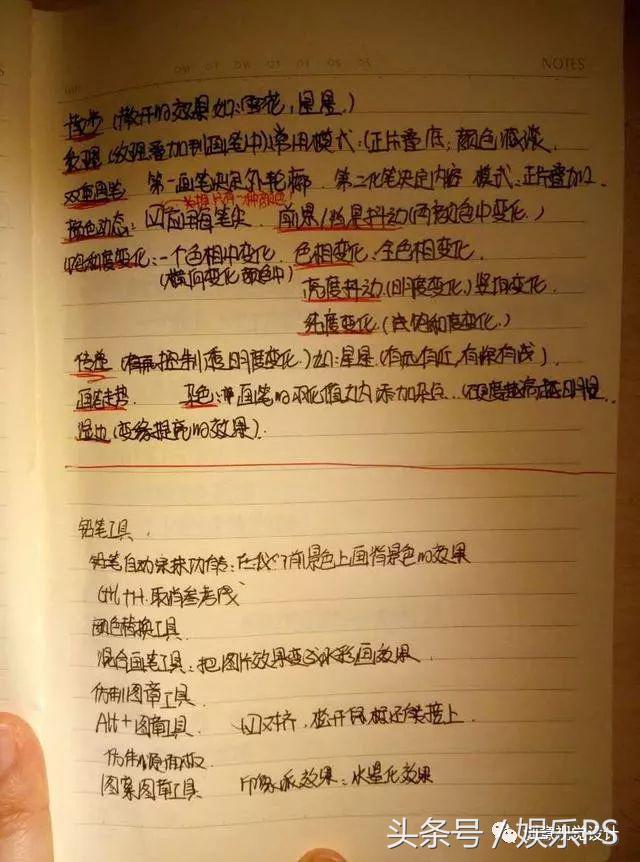 NOTES
散步 (散开的效果如:雪花,星星.)
纹理 (纹理叠加到画笔中) 常用模式:(正片叠底; 颜色减淡
双重画笔 第一画笔决定外轮廓. 第二化笔决定内容 模式:正片叠加
颜色动态: 应用每笔尖 前景/背景抖动(两种颜色中变化.)
饱和度变化:一个色相中变化. 色相变化:全色相变化.
(横向变化 颜色中)
亮度抖动(明度变化.)竖向变化.
纯度变化 (饱和度变化.)
传递 (控制透明度变化.)如:星星(有远有近,有深有浅)
画笔走势 杂色: 画笔的 添加杂点
湿边 (变缘提亮的效果).
铅笔工具
铅笔自动涂抹功能: 前景色上画背景色的效果
Ctrl+H.取消参考线
颜色替换工具
混合画笔工具:把图片效果变成水彩画效果.
仿制图章工具
Alt+图章工具 对齐,松开鼠标还能接上.
图案图章工具 印象派效果:水墨化效果
头条号/娱乐PS